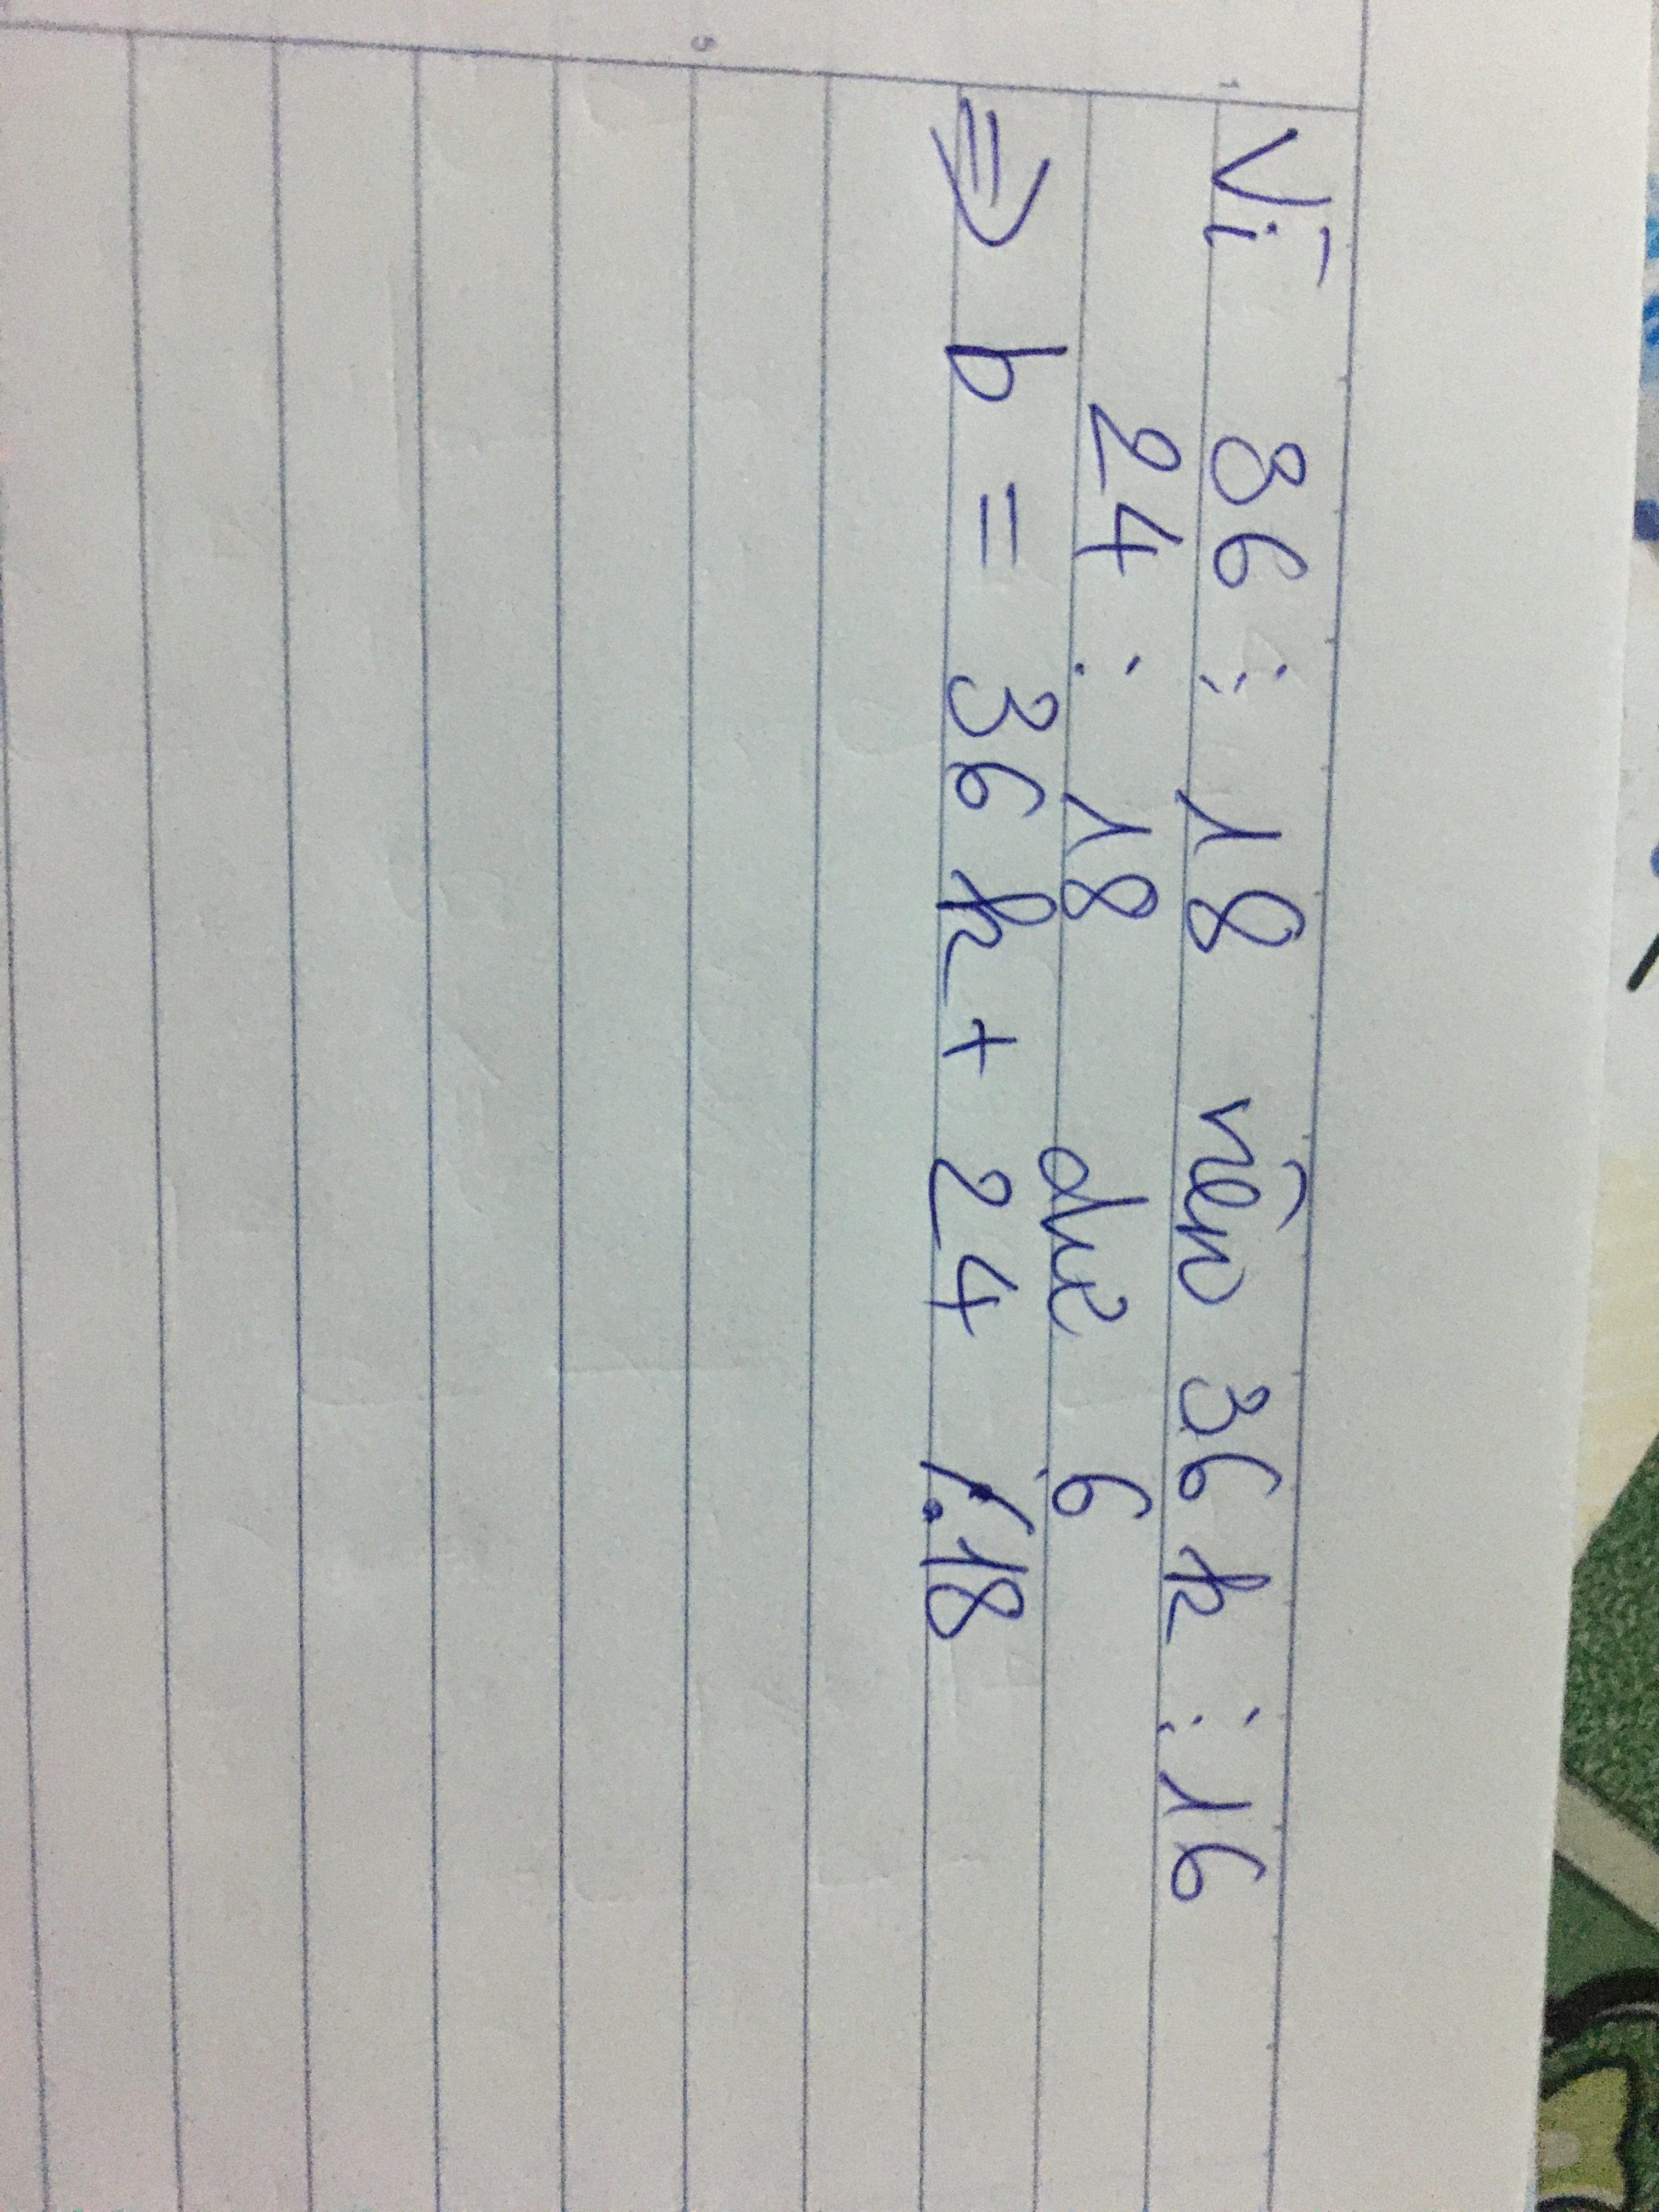 Vì 36 ⋮ 18 nên 36k ⋮ 16
24 : 18 dư 6
⇒ b = 36k + 24 ⋮̸ 18
1
5